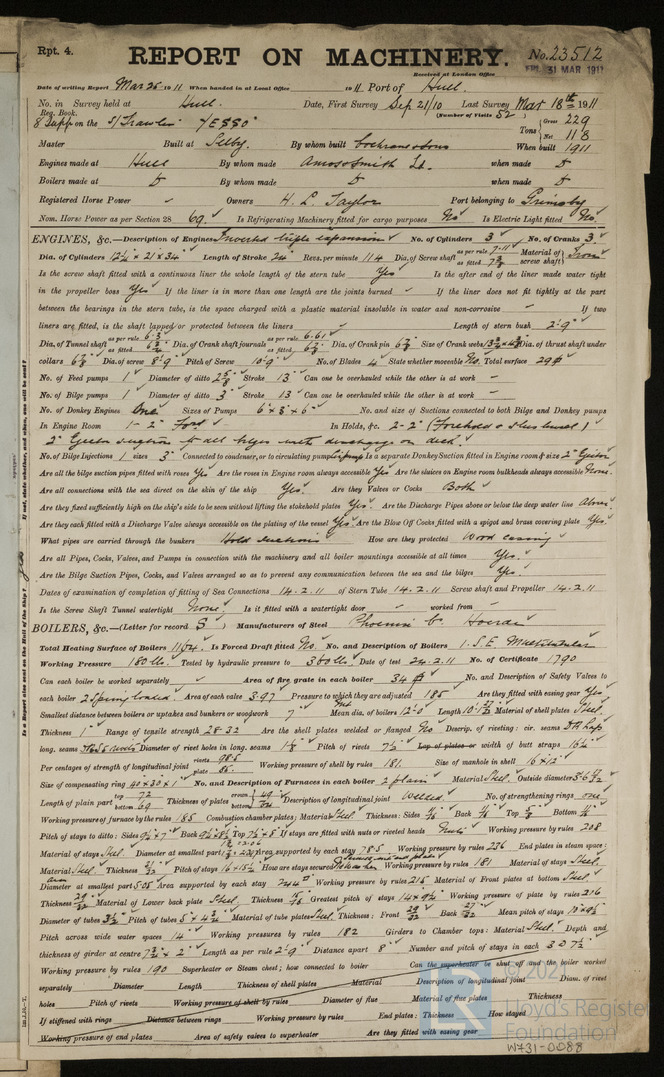 Rpt. 4.
REPORT ON MACHINERY.
No. 23512
Received at London Office
FRI. 31 MAR 1911
Date of writing Report Mar 25 1911 When handed in at Local Office 1911 Port of Hull.
No. in Survey held at Hull. Date, First Survey Sep 21/10 Last Survey Mar 18th 1911
Reg. Book. (Number of Visits 52)
on the S/Trawler "YESSO" Tons { Gross 229 Net 118
Master Built at Selby. By whom built Cochrane & Sons When built 1911
Engines made at Hull By whom made Amos & Smith Ld. when made
Boilers made at By whom made when made
Registered Horse Power Owners H. L. Taylor Port belonging to Grimsby
Nom. Horse Power as per Section 28 69. Is Refrigerating Machinery fitted for cargo purposes No Is Electric Light fitted No.
ENGINES, &c.—Description of Engines Inverted triple expansion No. of Cylinders 3 No. of Cranks 3.
Dia. of Cylinders 12¼" × 21" × 34" Length of Stroke 24" Revs. per minute 114 Dia. of Screw shaft as per rule 7.11 as fitted Material of screw shaft Iron
Is the screw shaft fitted with a continuous liner the whole length of the stern tube Yes Is the after end of the liner made water tight
in the propeller boss Yes If the liner is in more than one length are the joints burned – If the liner does not fit tightly at the part
between the bearings in the stern tube, is the space charged with a plastic material insoluble in water and non-corrosive – If two
liners are fitted, is the shaft lapped or protected between the liners Length of stern bush 2'-9"
Dia. of Tunnel shaft as per rule 6.3 as fitted Dia. of Crank shaft journals as per rule 6.61 as fitted Dia. of Crank pin Size of Crank webs Dia. of thrust shaft under
collars Dia. of screw 8'-9" Pitch of Screw 10'-9" No. of Blades 4 State whether moveable No. Total surface 29
No. of Feed pumps 1 Diameter of ditto Stroke 13" Can one be overhauled while the other is at work –
No. of Bilge pumps 1 Diameter of ditto 3" Stroke 13" Can one be overhauled while the other is at work –
No. of Donkey Engines One Sizes of Pumps 6" × 3" × 6" No. and size of Suctions connected to both Bilge and Donkey pumps
In Engine Room 1-2" Ford In Holds, &c. 2-2" (Forehold &
2" Ejector suction to all bilges with discharge on deck.
No. of Bilge Injections 1 sizes 3" Connected to condenser, or to circulating pump Is a separate Donkey Suction fitted in Engine room & size 2" Ejector
Are all the bilge suction pipes fitted with roses Yes Are the roses in Engine room always accessible Yes Are the sluices on Engine room bulkheads always accessible None.
Are all connections with the sea direct on the skin of the ship Yes. Are they Valves or Cocks Both
Are they fixed sufficiently high on the ship's side to be seen without lifting the stokehold plates Yes. Are the Discharge Pipes above or below the deep water line Above
Are they each fitted with a Discharge Valve always accessible on the plating of the vessel Yes. Are the Blow Off Cocks fitted with a spigot and brass covering plate Yes.
What pipes are carried through the bunkers Hold suctions How are they protected Wood casing
Are all Pipes, Cocks, Valves, and Pumps in connection with the machinery and all boiler mountings accessible at all times Yes.
Are the Bilge Suction Pipes, Cocks, and Valves arranged so as to prevent any communication between the sea and the bilges Yes.
Dates of examination of completion of fitting of Sea Connections 14.2.11 of Stern Tube 14.2.11 Screw shaft and Propeller 14.2.11
Is the Screw Shaft Tunnel watertight None. Is it fitted with a watertight door – worked from –
BOILERS, &c.—(Letter for record S) Manufacturers of Steel Phoenix Co Hoerde
Total Heating Surface of Boilers 1104. Is Forced Draft fitted No. No. and Description of Boilers 1. S.E. Multitubular
Working Pressure 180 lbs. Tested by hydraulic pressure to 360 lbs. Date of test 24.2.11 No. of Certificate 1790
Can each boiler be worked separately Area of fire grate in each boiler 34 No. and Description of Safety Valves to
each boiler 2 Spring loaded. Area of each valve 3.97 Pressure to which they are adjusted 185 Are they fitted with easing gear Yes
Smallest distance between boilers or uptakes and bunkers or woodwork 7" Mean dia. of boilers 12'-0" Length Material of shell plates Steel.
Thickness 1" Range of tensile strength 28-32 Are the shell plates welded or flanged No Descrip. of riveting: cir. seams DR Lap
long. seams Diameter of rivet holes in long. seams Pitch of rivets 7½" Lap of plates or width of butt straps
Per centages of strength of longitudinal joint rivets 98.5 plate 85. Working pressure of shell by rules 181. Size of manhole in shell 16" × 12"
Size of compensating ring 40 × 30 × 1" No. and Description of Furnaces in each boiler 2 plain Material Steel. Outside diameter
Length of plain part top 72 bottom 69 Thickness of plates crown bottom Description of longitudinal joint Welded No. of strengthening rings one.
Working pressure of furnace by the rules 185 Combustion chamber plates: Material Steel. Thickness: Sides Back Top Bottom
Pitch of stays to ditto: Sides Back Top If stays are fitted with nuts or riveted heads Nuts Working pressure by rules 208
Material of stays Steel. Diameter at smallest part Area supported by each stay 78.5 Working pressure by rules 236 End plates in steam space:
Material Steel. Thickness Pitch of stays How are stays secured Working pressure by rules 181 Material of stays Steel.
Diameter at smallest part 5.05 Area supported by each stay 244 Working pressure by rules 215 Material of Front plates at bottom Steel
Thickness Material of Lower back plate Steel, Thickness Greatest pitch of stays Working pressure of plate by rules 216
Diameter of tubes 3½" Pitch of tubes Material of tube plates Steel. Thickness: Front Back Mean pitch of stays
Pitch across wide water spaces 14" Working pressures by rules 182 Girders to Chamber tops: Material Steel. Depth and
thickness of girder at centre Length as per rule 2'-9" Distance apart 8" Number and pitch of stays in each
Working pressure by rules 190 Superheater or Steam chest; how connected to boiler Can the superheater be shut off and the boiler worked
separately Diameter Length Thickness of shell plates Material Description of longitudinal joint Diam. of rivet
holes Pitch of rivets Working pressure of shell by rules Diameter of flue Material of flue plates Thickness
If stiffened with rings Distance between rings Working pressure by rules End plates: Thickness How stayed
Working pressure of end plates Area of safety valves to superheater Are they fitted with easing gear
Is a Report also sent on the Hull of the Ship?
If not, state whether, and when, one will be sent?
© 2021
Lloyd's Register
Foundation
W731-0088